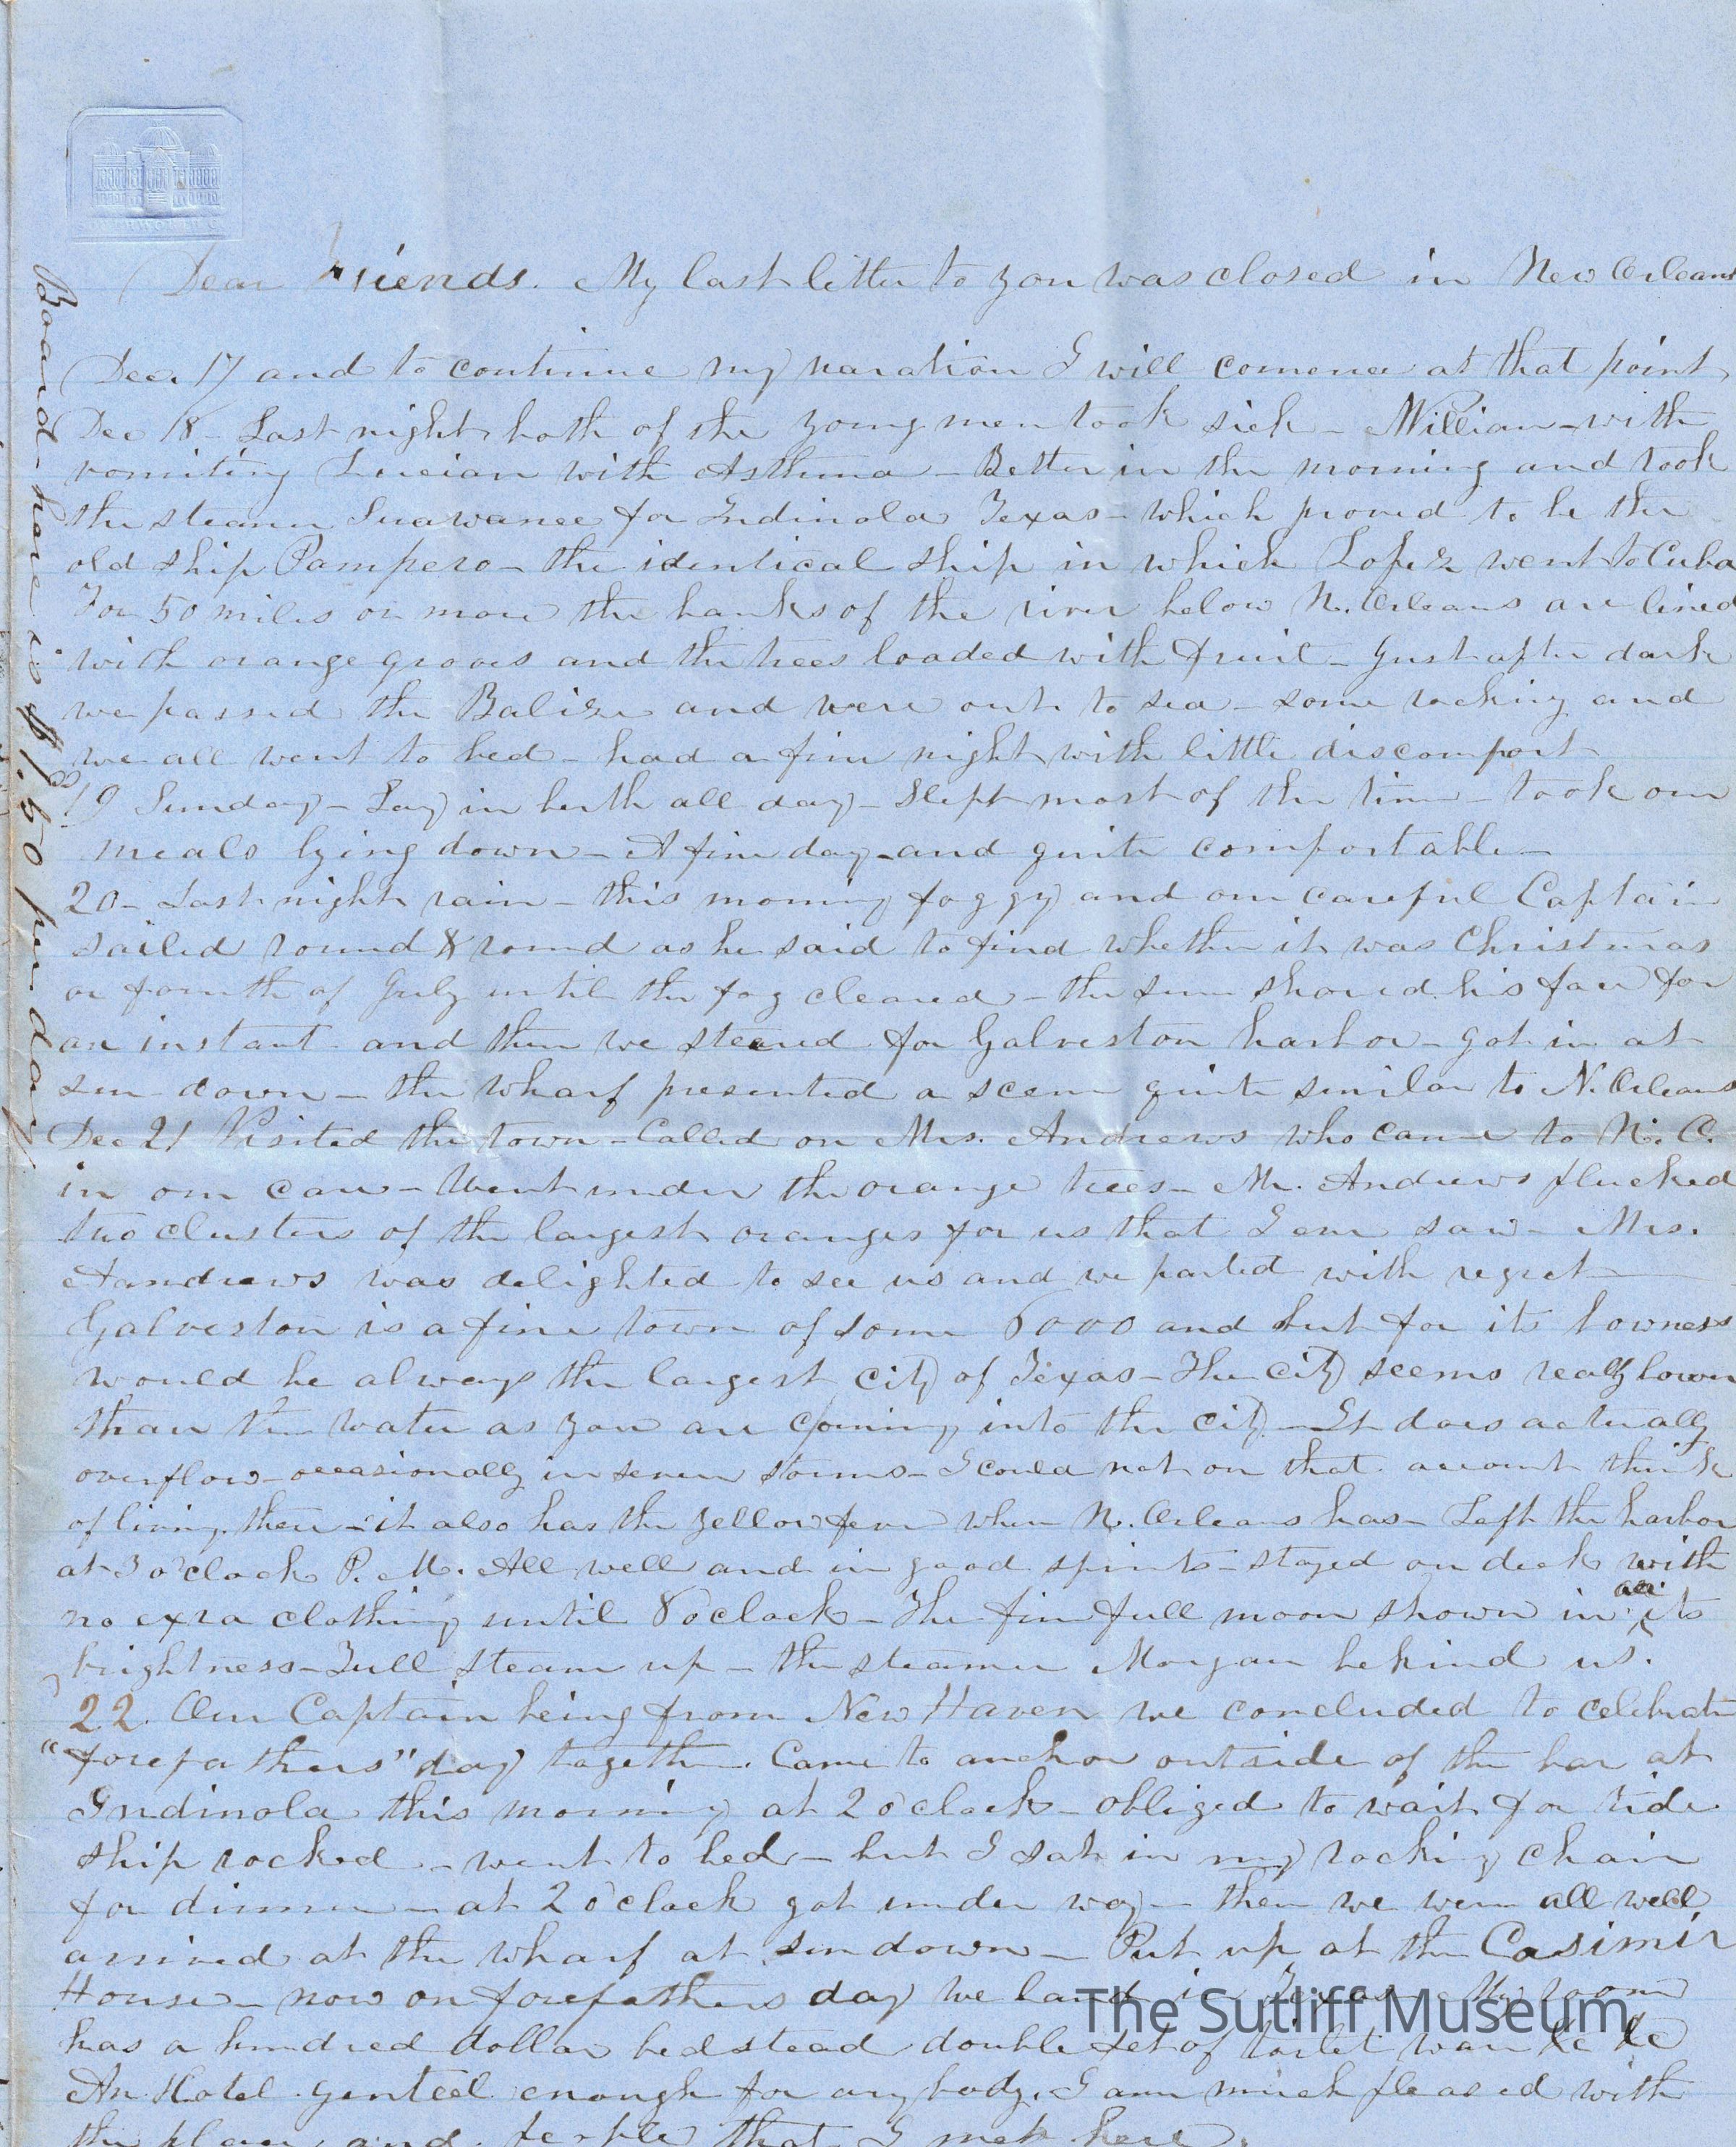 Dear Friends. My last letter to you was closed in New Orleans
Dec. 17 and to continue my naration I will comence at that point,
Dec 18 - Last night both of the young men took sick - William - with
vomiting Lucian with Asthma - Better in the morning and took
the steamer Suawanee for Indinola Texas - which proved to be the
old ship Pampero - the identical ship in which Lopez went to Cuba
For 50 miles or more the banks of the river below N. Orleans are lined
with orange groves and the trees loaded with fruit - Just after dark
we passed the Balize and were out to sea - some rocking and
we all went to bed - had a fine night with little discomfort
19 Sunday - Lay in berth all day - Slept most of the time - took our
meals lying down - A fine day - and quite comfortable -
20 - Last night rain - this morning foggy and our careful Captain
sailed round & round as he said to find whether it was Christmas
or fourth of July until the fog cleared - the sun showed his face for
an instant and then we steared for Galveston harbor - got in at
sun-down - the wharf presented a scene quite similar to N. Orleans
Dec 21 Visited the town - Called on Mrs. Andrews who came to N. O.
in our care - Went under the orange trees - Mr. Andrews plucked
two clusters of the largest oranges for us that I ever saw - Mrs.
Aandrews was delighted to see us and we parted with regret -
Galveston is a fine town of some 6000 and but for its lowness
would be always the largest city of Texas - The city seems really lower
than the water as you are coming into the city - It does actually
overflow - occasionally in severe storms - I could not on that account think
of living there - it also has the yellow fever when N. Orleans has - Left the harbor
at 3 o'clock P. M. All well and in good spirits - stayed on deck with
no exra clothing until 8 oclock - The fine full moon shown in all its
brightness - Full steam up - the steamer Morgan behind us.
22. Our Captain being from New Haven we concluded to celebrate
"forefathers" day together. Came to anchor outside of the bar at
Indinola this morning at 2 o'clock - obliged to wait for tide
ship rocked - went to bed - but I sat in my rocking chair
for dinner - at 2 o'clock got under way - then we were all well
arrived at the wharf at sundown - Put up at the Casimir
House - now on forefathers day we land in Texas - My room
has a hundred dollar bedstead double set of toilet ware &c &c
An Hotel genteel enough for anybody. I am much pleased with
the place and people that I meet here.
Board here is $1.50 per day
The Sutliff Museum